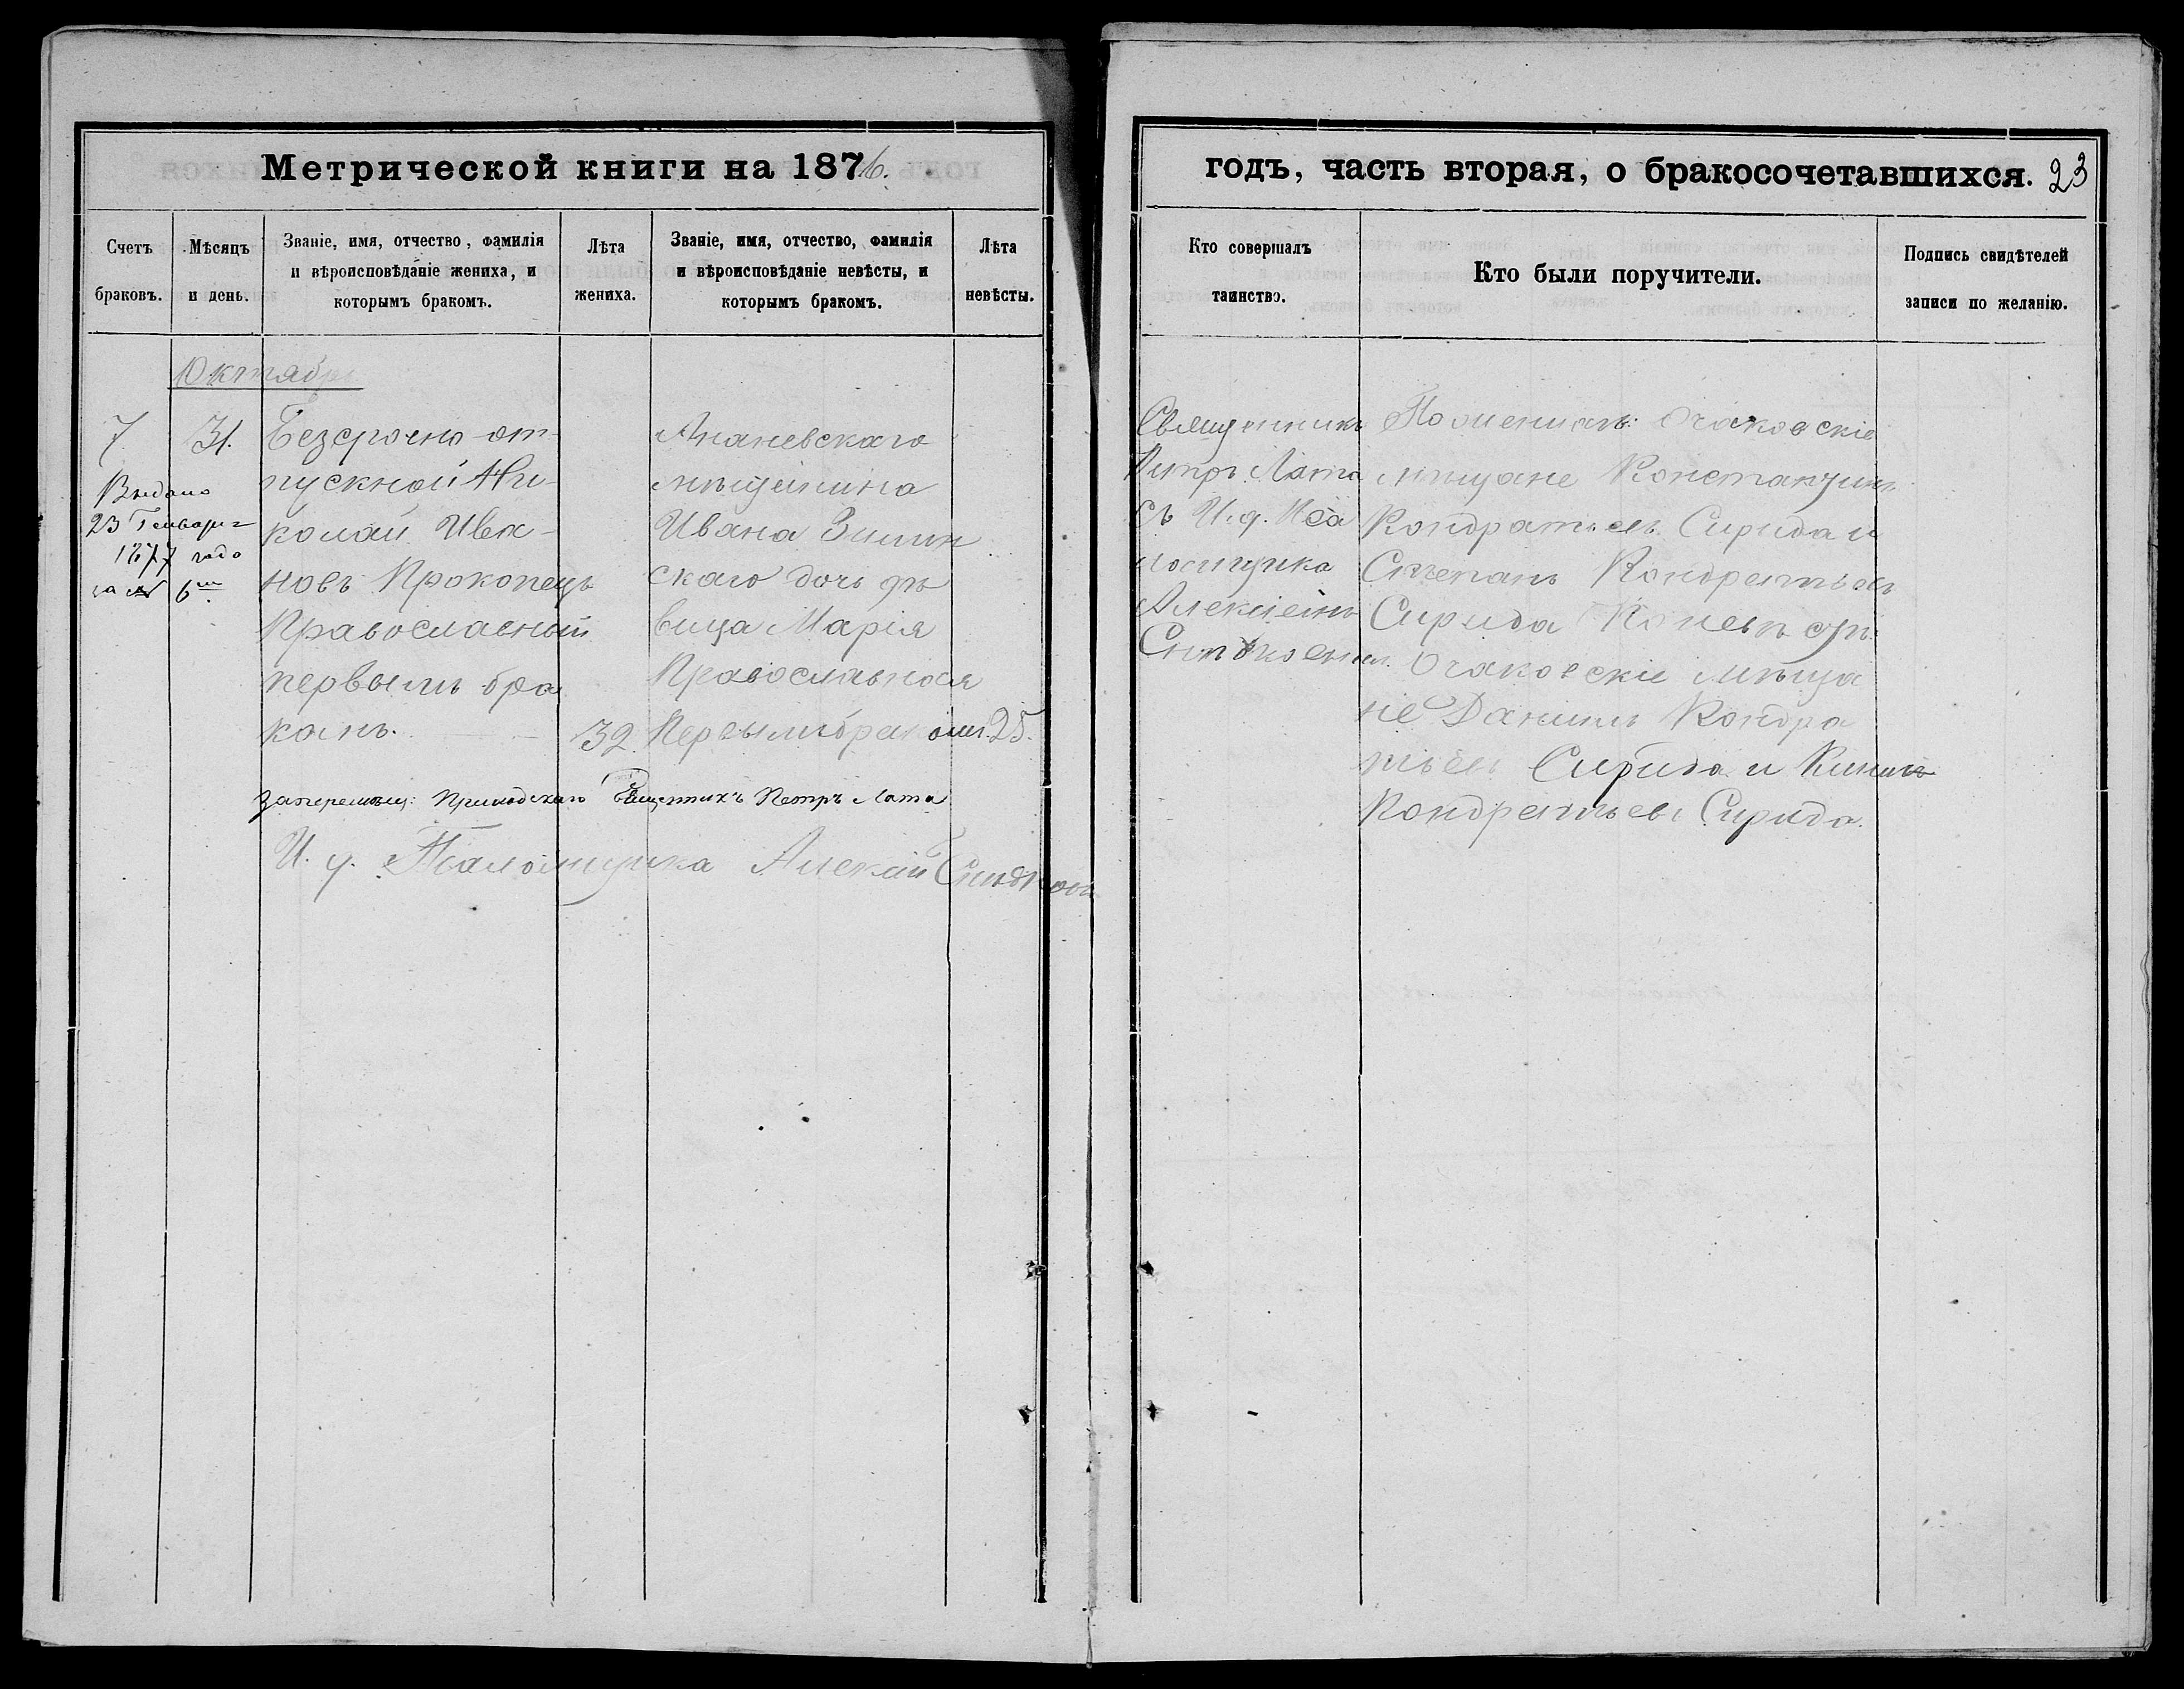 Метрической книги на 1876.
Счетъ браковъ.
Мѣсяцъ и день.
Званіе, имя, отчество, фамилія
и вѣроисповѣданіе жениха, и
которымъ бракомъ.
Лѣта
жениха.
Званіе, имя, отчество, фамилія
и вѣроисповѣданіе невѣсты, и
которымъ бракомъ.
Лѣта
невѣсты.
Октября
7
31.
Выдано
23 Генваря
1877 года
за № 6
Безсрочно-от-
пускной Ни-
колай Ива-
новъ Прокопецъ
Православный
первымъ бра
комъ.
32.
Ананевскаго
мѣщанина
Ивана Зилин
скаго дочь дѣ
вица Марія
Православная
Первымъ бракомъ.
25.
Приходскаго Священникъ Петръ Лата
И. д. Псаломщика Алексѣй
годъ, часть вторая, о бракосочетавшихся. 23
Кто совершалъ
таинство.
Кто были поручители.
Подпись свидѣтелей
записи по желанію.
Священникъ
Петръ Лата
съ И. д. Пса
ломщика
Алексѣемъ
По жениху: Очаковскіе
мѣщане Константинъ
Кондратьевъ Сирида и
Степанъ Кондратьевъ
Сирида По невѣстѣ:
Очаковскіе мѣща
не Даніилъ Кондра
тьевъ Сирида и
Кондратьевъ Сирида.